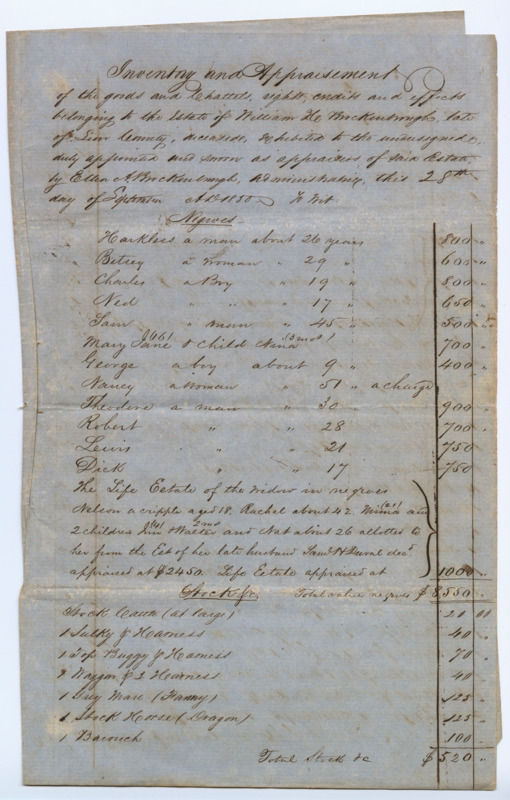 Inventory and Appraisement
of the goods and Chattels, rights, credits and effects
belonging to the Estate of William H. Brockenbrough, late
of Leon County, deceased, exhibited to the undersigned,
duly appointed and sworn as appraisers of said Estate
by Ellen A Brockenbrough, Administratrix, this 28th
day of September AD 1850 To Wit
Negroes
Harkless a man about 26 years 800 "
Betsey a Woman " 29 " 600 "
Charles a Boy " 19 " 800 "
Ned " " " 17 " 650 "
Sam " man " 45 " 500 "
Mary Jane & Child Nina (3 mos) 700 "
George a boy about 9 " 400 "
Nancy a woman " 51 " a charge
Theodore a man " 30 900 "
Robert " " 28 700 "
Lewis " " 21 750
Dick " " 17 750
The Life Estate of the Widow in negroes
Nelson a cripple aged 18. Rachel about 42. (21) and
2 children (4) & Walter 2 mos and Nat about 26 allotted to
her from the Est of her late husband Saml H Duval decd
appraised at $2450. Life Estate appraised at 1000 "
Stock &c Total value negroes $8,550 "
Stock Cattle (at large) 21 00
1 Sulky & Harness 40 "
1 Top Buggy & Harness 70 "
Waggon & 2 Harness 40 "
1 Grey Mare (Fanny) 125 "
1 Stock Horse (Dragon) 125 "
1 Barouch 100 "
Total Stock &c $520 "